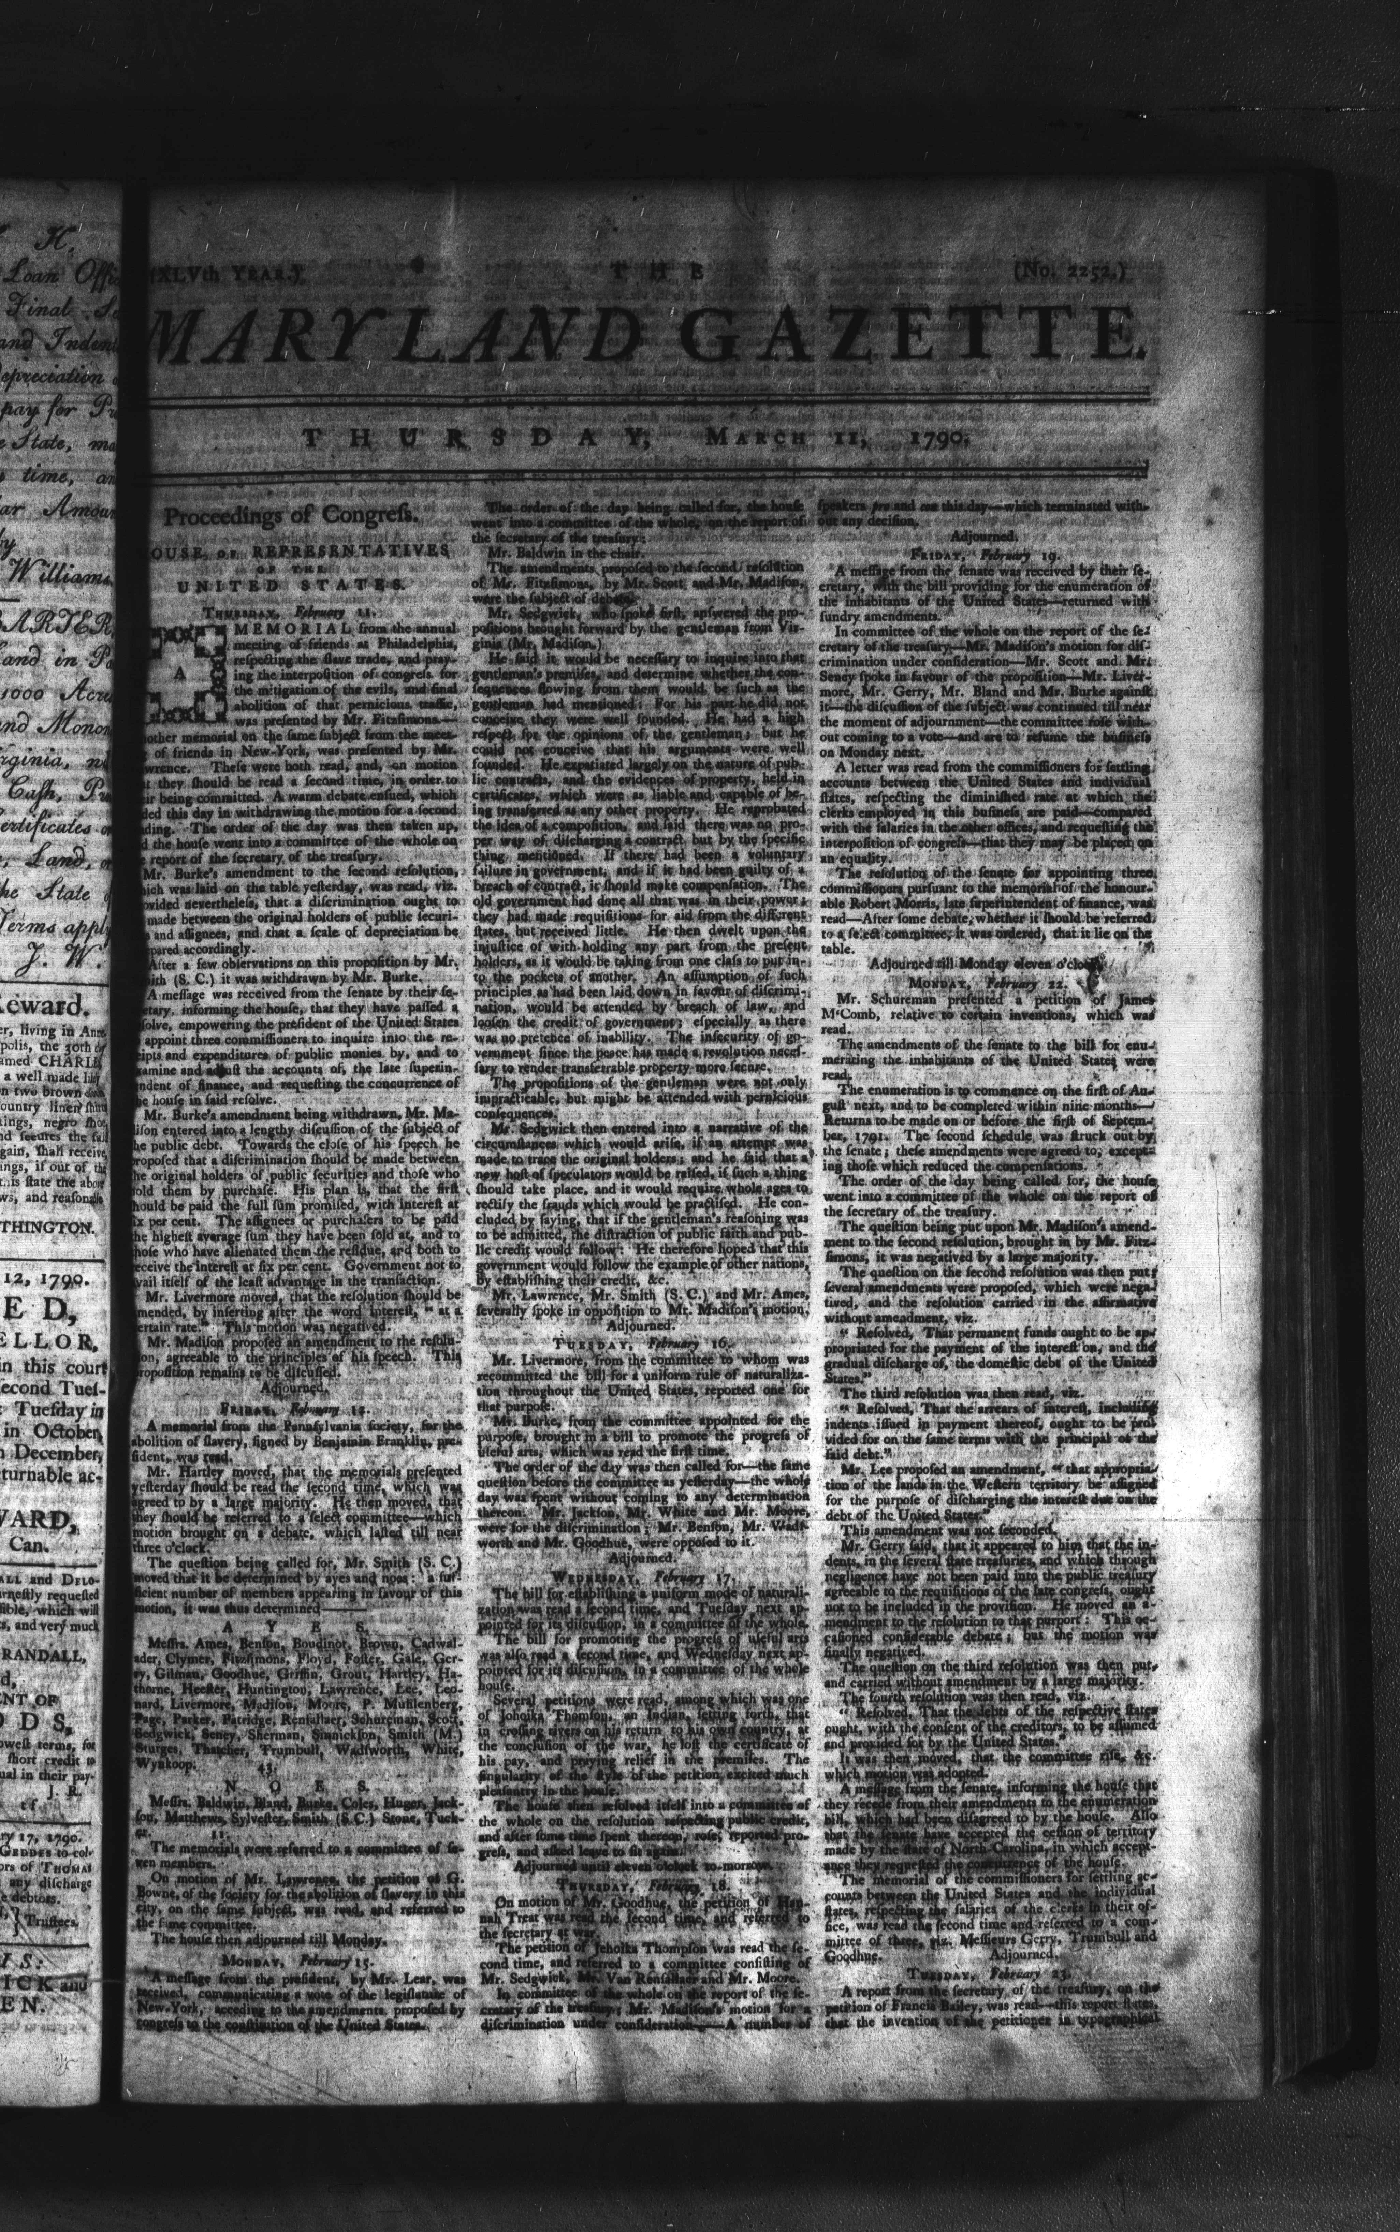 H.
Loan Offi
Final Se
and Inden
epreciation
pay for Pu
e State, ma
time, an
ar Amoun
y
Williams
BARTER
Land in Pa
1000 Acre
and Monon
rginia, n
Cash, Pu
ertificates o
, Land, o
he State
Terms appl
J. W.
eward.
er, living in Ann
polis, the 30th
amed CHARL
a well made
n two brown
ountry linen shirt
ings, negro shoe
nd secures the
gain, shall receive
ings, if out of the
t is state the above
ws, and reasonable
THINGTON.
12, 1790.
E D,
ELLOR.
in this court
econd Tues-
Tuesday in
in October,
December,
turnable ac-
WARD,
Can.
ALL and DELO-
rnestly requested
sible, which will
s, and very much
RANDALL,
d,
ENT OF
O D S,
owest terms, for
short credit to
ual in their pay-
J. R.
ry 17, 1790.
GEDDES to col-
ors of THOMAS
any discharge
e debtors.
Trustees.
I S:
ICK and
EN.
(XLVth YEAR.) T H E (No. 2252.)
MARYLAND GAZETTE.
T H U R S D A Y, MARCH 11, 1790.
Proceedings of Congreſs.
OUSE OF REPRESENTATIVES
OF THE
UNITED STATES.
THURSDAY, February 11.
A MEMORIAL from the annual
meeting of friends at Philadelphia,
reſpecting the ſlave trade, and pray-
ing the interpoſition of congreſs for
the mitigation of the evils, and final
abolition of that pernicious traffic,
was preſented by Mr. Fitzſimons.—
other memorial on the ſame ſubject from the meet-
of friends in New-York, was preſented by Mr.
wrence. Theſe were both read, and, on motion
t they ſhould be read a ſecond time, in order to
ir being committed. A warm debate enſued, which
ded this day in withdrawing the motion for a ſecond
ding. The order of the day was then taken up,
d the houſe went into a committee of the whole on
e report of the ſecretary of the treaſury.
Mr. Burke's amendment to the ſecond reſolution,
hich was laid on the table yeſterday, was read, viz.
ovided nevertheleſs, that a diſcrimination ought to
made between the original holders of public ſecuri-
s and aſſignees, and that a ſcale of depreciation be
pared accordingly.
After a few obſervations on this propoſition by Mr.
ith (S. C.) it was withdrawn by Mr. Burke.
A meſſage was received from the ſenate by their ſe-
etary, informing the houſe, that they have paſſed a
ſolve, empowering the preſident of the United States
appoint three commiſſioners to inquire into the re-
ipts and expenditures of public monies by, and to
xamine and adjuſt the accounts of, the late ſuperin-
ndent of finance, and requeſting the concurrence of
he houſe in ſaid reſolve.
Mr. Burke's amendment being withdrawn, Mr. Ma-
diſon entered into a lengthy diſcuſſion of the ſubject of
he public debt. Towards the cloſe of his ſpeech he
propoſed that a diſcrimination ſhould be made between
he original holders of public ſecurities and thoſe who
old them by purchaſe. His plan is, that the firſt
hould be paid the full ſum promiſed, with intereſt at
ix per cent. The aſſignees or purchaſers to be paid
the higheſt average ſum they have been ſold at, and to
thoſe who have alienated them the reſidue, and both to
receive the intereſt at ſix per cent. Government not to
vail itſelf of the leaſt advantage in the tranſaction.
Mr. Livermore moved, that the reſolution ſhould be
mended, by inſerting after the word intereſt, " at a
certain rate." This motion was negatived.
Mr. Madiſon propoſed an amendment to the reſolu-
on, agreeable to the principles of his ſpeech. This
propoſition remains to be diſcuſſed.
Adjourned.
FRIDAY, February 12.
A memorial from the Pennſylvania ſociety, for the
abolition of ſlavery, ſigned by Benjamin Franklin, pre-
ſident, was read.
Mr. Hartley moved, that the memorials preſented
yeſterday ſhould be read the ſecond time, which was
agreed to by a large majority. He then moved, that
they ſhould be referred to a ſelect committee—which
motion brought on a debate, which laſted till near
three o'clock.
The queſtion being called for, Mr. Smith (S. C.)
moved that it be determined by ayes and noes: a ſuf-
ficient number of members appearing in favour of this
motion, it was thus determined———
A Y E S.
Meſſrs. Ames, Benſon, Boudinot, Brown, Cadwal-
ader, Clymer, Fitzſimons, Floyd, Foſter, Gale, Ger-
ry, Gilman, Goodhue, Griffin, Grout, Hartley, Ha-
thorne, Heeſter, Huntington, Lawrence, Lee, Leo-
nard, Livermore, Madiſon, Moore, P. Muhlenberg,
Page, Parker, Patridge, Renſallaer, Schureman, Scott,
Sedgwick, Seney, Sherman, Sinnickſon, Smith (M.)
Sturges, Thatcher, Trumbull, Wadſworth, White,
Wynkoop. 43.
N O E S.
Meſſrs. Baldwin, Bland, Burke, Coles, Huger, Jack-
ſon, Matthews, Sylveſter, Smith (S.C.) Stone, Tuck-
er. 11.
The memorials were referred to a committee of ſe-
ven members.
On motion of Mr. Lawrence, the petition of G.
Bowne, of the ſociety for the abolition of ſlavery in this
city, on the ſame ſubject, was read, and referred to
the ſame committee.
The houſe then adjourned till Monday.
MONDAY, February 15.
A meſſage from the preſident, by Mr. Lear, was
received, communicating a vote of the legiſlature of
New-York, acceding to the amendments propoſed by
congreſs to the conſtitution of the United States.
The order of the day being called for, the houſe
went into a committee of the whole, on the report of
the ſecretary of the treaſury:
Mr. Baldwin in the chair.
The amendments propoſed to the ſecond reſolution
of Mr. Fitzſimons, by Mr. Scott and Mr. Madiſon,
were the ſubject of debate.
Mr. Sedgwick, who ſpoke firſt, anſwered the pro-
poſitions brought forward by the gentleman from Vir-
ginia (Mr. Madiſon.)
He ſaid it would be neceſſary to inquire into that
gentleman's premiſes, and determine whether the con-
ſequences flowing from them would be ſuch as the
gentleman had mentioned: For his part he did not
conceive they were well founded. He had a high
reſpect for the opinions of the gentleman; but he
could not conceive that his arguments were well
founded. He expatiated largely on the nature of pub-
lic contracts, and the evidences of property, held in
certificates, which were as liable and capable of be-
ing transferred as any other property. He reprobated
the idea of a compoſition, and ſaid there was no pro-
per way of diſcharging a contract but by the ſpecific
thing mentioned. If there had been a voluntary
failure in government, and if it had been guilty of a
breach of contract, it ſhould make compenſation. The
old government had done all that was in their power;
they had made requiſitions for aid from the different
ſtates, but received little. He then dwelt upon the
injuſtice of with-holding any part from the preſent
holders, as it would be taking from one claſs to put in-
to the pockets of another. An aſſumption of ſuch
principles as had been laid down in favour of diſcrimi-
nation, would be attended by breach of law, and
looſen the credit of government; eſpecially as there
was no pretence of inability. The inſecurity of go-
vernment ſince the peace has made a revolution neceſ-
ſary to render transferable property more ſecure.
The propoſitions of the gentleman were not only
impracticable, but might be attended with pernicious
conſequences.
Mr. Sedgwick then entered into a narrative of the
circumſtances which would ariſe, if an attempt was
made to trace the original holders; and he ſaid that a
new hoſt of ſpeculators would be raiſed, if ſuch a thing
ſhould take place, and it would require whole ages to
rectify the frauds which would be practiſed. He con-
cluded by ſaying, that if the gentleman's reaſoning was
to be admitted, the diſtraction of public faith and pub-
lic credit would follow: He therefore hoped that this
government would follow the example of other nations,
by eſtabliſhing their credit, &c.
Mr. Lawrence, Mr. Smith (S. C.) and Mr. Ames,
ſeverally ſpoke in oppoſition to Mr. Madiſon's motion.
Adjourned.
TUESDAY, February 16.
Mr. Livermore, from the committee to whom was
recommitted the bill for a uniform rule of naturaliza-
tion throughout the United States, reported one for
that purpoſe.
Mr. Burke, from the committee appointed for the
purpoſe, brought in a bill to promote the progreſs of
uſeful arts, which was read the firſt time.
The order of the day was then called for—the ſame
queſtion before the committee as yeſterday—the whole
day was ſpent without coming to any determination
thereon. Mr. Jackſon, Mr. White and Mr. Moore,
were for the diſcrimination; Mr. Benſon, Mr. Wadſ-
worth and Mr. Goodhue, were oppoſed to it.
Adjourned.
WEDNESDAY, February 17.
The bill for eſtabliſhing a uniform mode of naturali-
zation was read a ſecond time, and Tueſday next ap-
pointed for its diſcuſſion, in a committee of the whole.
The bill for promoting the progreſs of uſeful arts
was alſo read a ſecond time, and Wedneſday next ap-
pointed for its diſcuſſion, in a committee of the whole
houſe.
Several petitions were read, among which was one
of Johoika Thomſon, an Indian, ſetting forth, that
in croſſing rivers on his return to his own country, at
the concluſion of the war, he loſt the certificate of
his pay, and praying relief in the premiſes. The
ſingularity of the ſtyle of the petition excited much
pleaſantry in the houſe.
The houſe then reſolved itſelf into a committee of
the whole on the reſolution reſpecting public credit,
and after ſome time ſpent thereon, roſe, reported pro-
greſs, and aſked leave to ſit again.
Adjourned until eleven o'clock to-morrow.
THURSDAY, February 18.
On motion of Mr. Goodhue, the petition of Han-
nah Treat was read the ſecond time, and referred to
the ſecretary at war.
The petition of Jehoika Thompſon was read the ſe-
cond time, and referred to a committee conſiſting of
Mr. Sedgwick, Mr. Van Renſallaer and Mr. Moore.
In committee of the whole on the report of the ſe-
cretary of the treaſury; Mr. Madiſon's motion for a
diſcrimination under conſideration.——A number of
ſpeakers pro and con this day—which terminated with-
out any deciſion.
Adjourned.
FRIDAY, February 19.
A meſſage from the ſenate was received by their ſe-
cretary, with the bill providing for the enumeration of
the inhabitants of the United States—returned with
ſundry amendments.
In committee of the whole on the report of the ſe-
cretary of the treaſury—Mr. Madiſon's motion for diſ-
crimination under conſideration—Mr. Scott and Mr.
Seney ſpoke in favour of the propoſition—Mr. Liver-
more, Mr. Gerry, Mr. Bland and Mr. Burke againſt
it—the diſcuſſion of the ſubject was continued till near
the moment of adjournment—the committee roſe with-
out coming to a vote—and are to reſume the buſineſs
on Monday next.
A letter was read from the commiſſioners for ſettling
accounts between the United States and individual
ſtates, reſpecting the diminiſhed rate at which the
clerks employed in this buſineſs are paid—compared
with the ſalaries in the other offices, and requeſting the
interpoſition of congreſs—that they may be placed on
an equality.
The reſolution of the ſenate for appointing three
commiſſioners purſuant to the memorial of the honour-
able Robert Morris, late ſuperintendent of finance, was
read—After ſome debate, whether it ſhould be referred
to a ſelect committee, it was ordered, that it lie on the
table.
Adjourned till Monday eleven o'clock
MONDAY, February 22.
Mr. Schureman preſented a petition of James
M'Comb, relative to certain inventions, which was
read.
The amendments of the ſenate to the bill for enu-
merating the inhabitants of the United States were
read.
The enumeration is to commence on the firſt of Au-
guſt next, and to be completed within nine months—
Returns to be made on or before the firſt of Septem-
ber, 1791. The ſecond ſchedule was ſtruck out by
the ſenate; theſe amendments were agreed to, except-
ing thoſe which reduced the compenſations.
The order of the day being called for, the houſe
went into a committee of the whole on the report of
the ſecretary of the treaſury.
The queſtion being put upon Mr. Madiſon's amend-
ment to the ſecond reſolution, brought in by Mr. Fitz-
ſimons, it was negatived by a large majority.
The queſtion on the ſecond reſolution was then put;
ſeveral amendments were propoſed, which were nega-
tived, and the reſolution carried in the affirmative
without amendment, viz.
" Reſolved, That permanent funds ought to be ap-
propriated for the payment of the intereſt on, and the
gradual diſcharge of, the domeſtic debt of the United
States."
The third reſolution was then read, viz.
" Reſolved, That the arrears of intereſt, including
indents iſſued in payment thereof, ought to be pro-
vided for on the ſame terms with the principal of the
ſaid debt."
Mr. Lee propoſed an amendment, " that appropria-
tion of the lands in the Weſtern territory be aſſigned
for the purpoſe of diſcharging the intereſt due on the
debt of the United States."
This amendment was not ſeconded.
Mr. Gerry ſaid, that it appeared to him that the in-
dents, in the ſeveral ſtate treaſuries, and which through
negligence have not been paid into the public treaſury
agreeable to the requiſitions of the late congreſs, ought
not to be included in the proviſion. He moved an a-
mendment to the reſolution to that purport: This oc-
caſioned conſiderable debate; but the motion was
finally negatived.
The queſtion on the third reſolution was then put,
and carried without amendment by a large majority.
The fourth reſolution was then read, viz.
" Reſolved, That the debts of the reſpective ſtates
ought, with the conſent of the creditors, to be aſſumed
and provided for by the United States."
It was then moved, that the committee riſe, &c.
which motion was adopted.
A meſſage from the ſenate, informing the houſe that
they recede from their amendments to the enumeration
bill, which had been diſagreed to by the houſe. Alſo
that the ſenate have accepted the ceſſion of territory
made by the ſtate of North-Carolina, in which accept-
ance they requeſted the concurrence of the houſe.
The memorial of the commiſſioners for ſettling ac-
counts between the United States and the individual
ſtates, reſpecting the ſalaries of the clerks in their of-
fice, was read the ſecond time and referred to a com-
mittee of three, viz. Meſſieurs Gerry, Trumbull and
Goodhue. Adjourned.
TUESDAY, February 23.
A report from the ſecretary of the treaſury, on the
petition of Francis Bailey, was read—this report ſtates,
that the invention of the petitioner in typographical